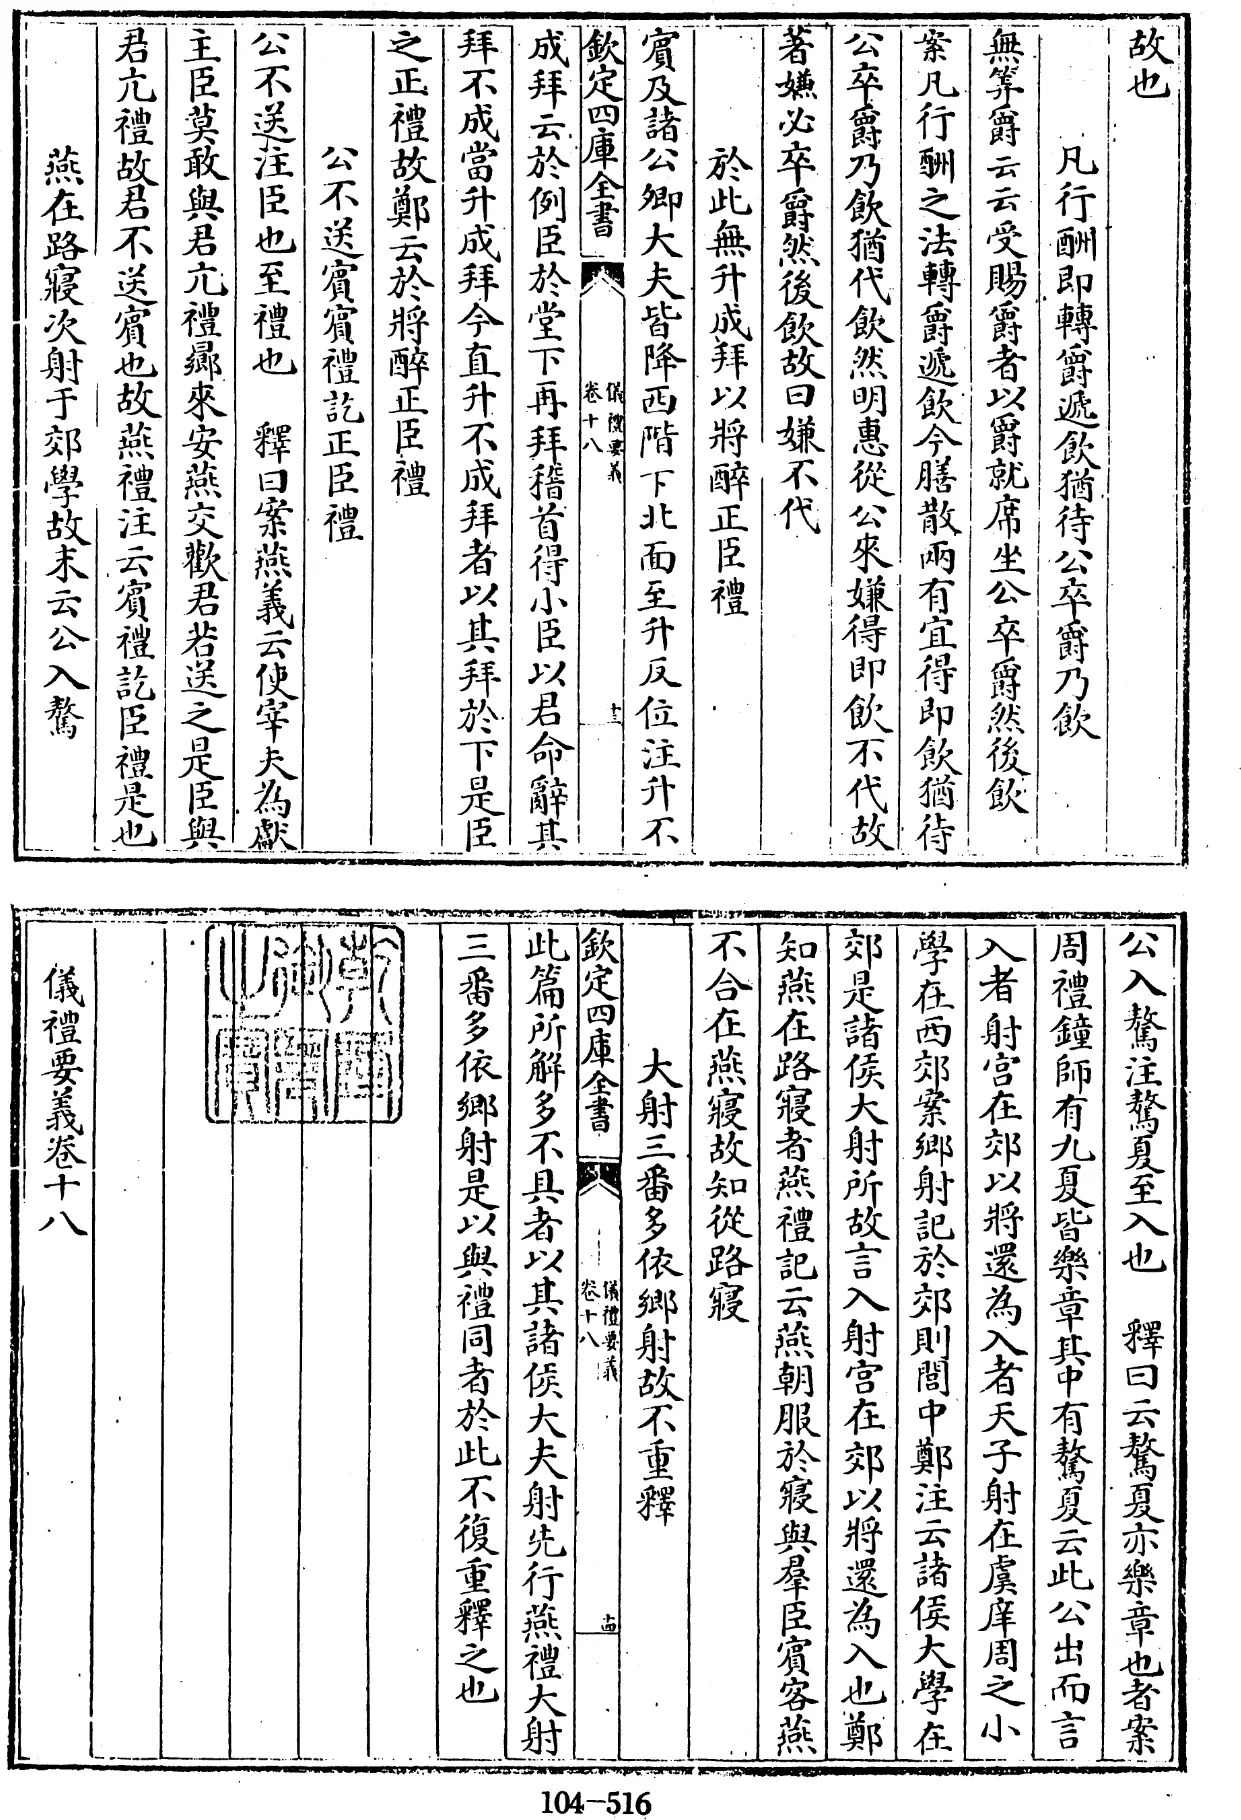 故也
凡行酬即轉爵遞飲猶待公卒爵乃飲
無筭爵云云受賜爵者以爵就席坐公卒爵然後飲
案凡行酬之法轉爵遞飲今膳散兩有宜得即飲猶待
公卒爵乃飲猶代飲然明惠從公來嫌得即飲不代故
著嫌必卒爵然後飲故曰嫌不代
於此無升成拜以將醉正臣禮
賓及諸公卿大夫皆降西階下北面至升反位注升不
欽定四庫全書
儀禮要義
卷十八
十三
成拜云於例臣於堂下再拜稽首得小臣以君命辭其
拜不成當升成拜今直升不成拜者以其拜於下是臣
之正禮故鄭云於將醉正臣禮
公不送賓賓禮訖正臣禮
公不送注臣也至禮也　釋曰案燕義云使宰夫為獻
主臣莫敢與君亢禮鄉來安燕交歡君若送之是臣與
君亢禮故君不送賓也故燕禮注云賓禮訖臣禮是也
燕在路寢次射于郊學故末云公入驁
公入驁注驁夏至入也　釋曰云驁夏亦樂章也者案
周禮鐘師有九夏皆樂章其中有驁夏云此公出而言
入者射宮在郊以將還為入者天子射在虞庠周之小
學在西郊案鄉射記於郊則閭中鄭注云諸侯大學在
郊是諸侯大射所故言入射宮在郊以將還為入也鄭
知燕在路寢者燕禮記云燕朝服於寢與羣臣賓客燕
不合在燕寢故知從路寢
大射三番多依鄉射故不重釋
欽定四庫全書
儀禮要義
卷十八
十四
此篇所解多不具者以其諸侯大夫射先行燕禮大射
三番多依鄉射是以與禮同者於此不復重釋之也
儀禮要義卷十八
104-516